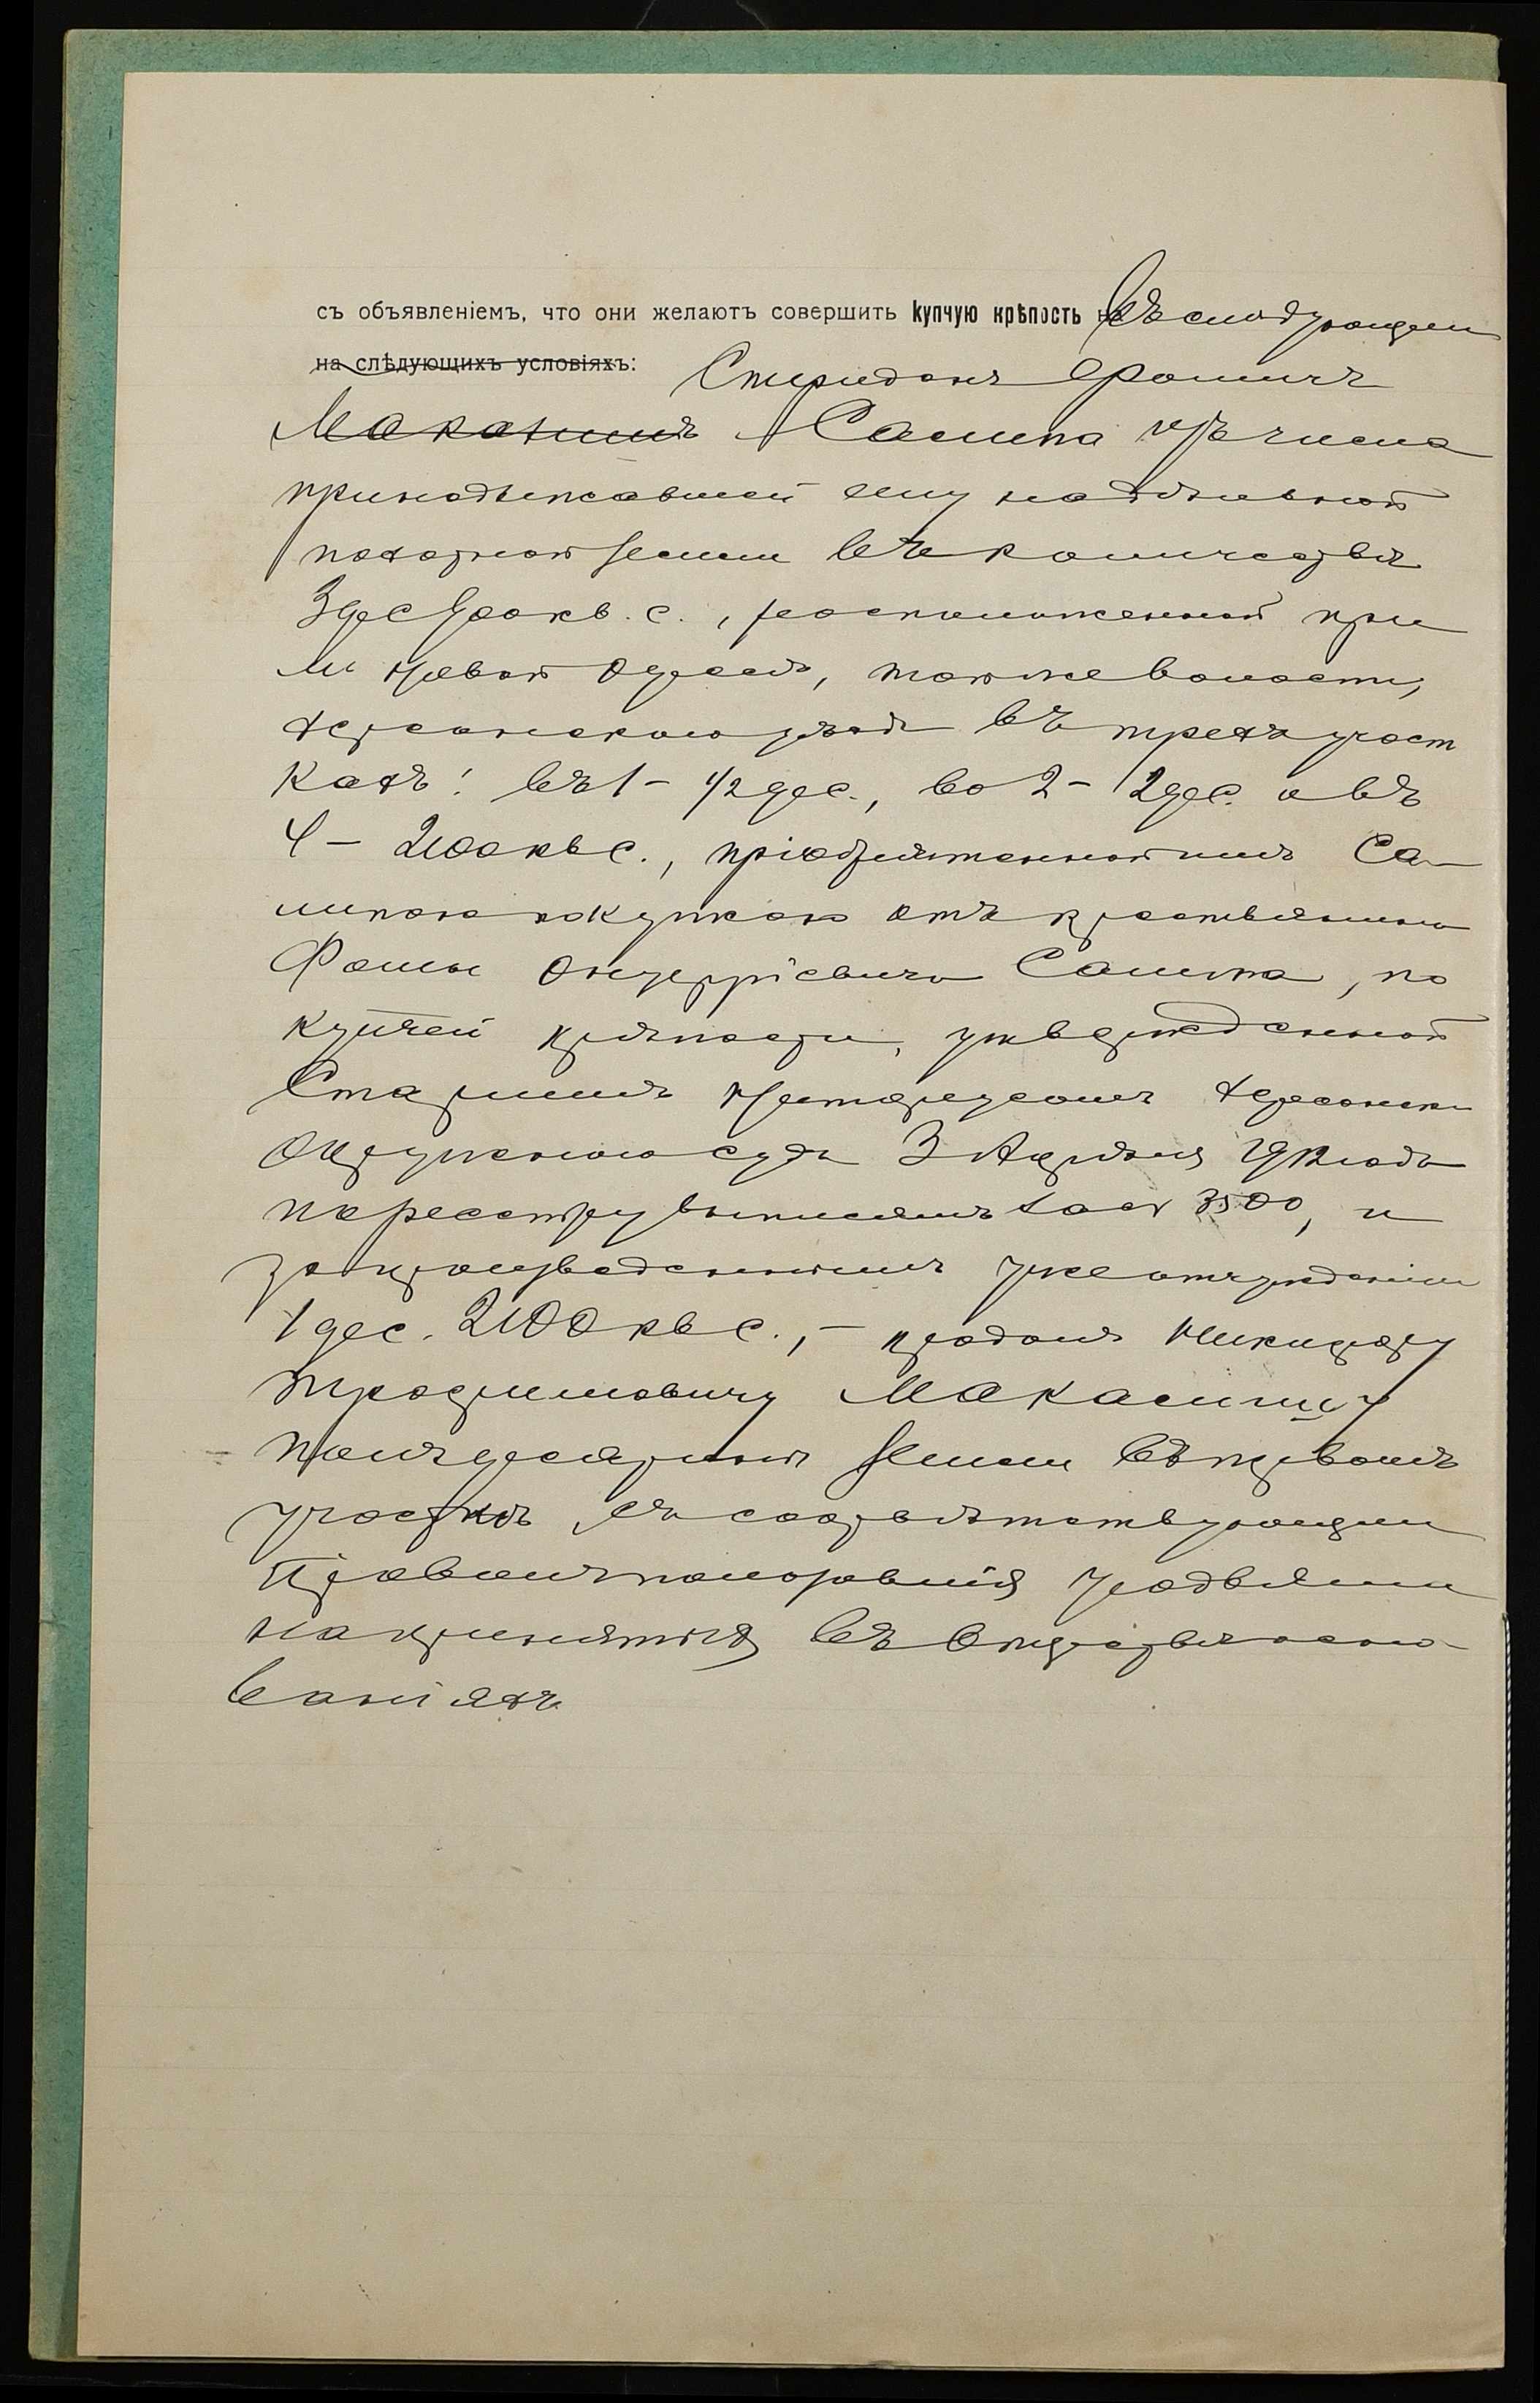 съ объявленіемъ, что они желаютъ совершить купчую крѣпость на въ слѣдующемъ
на слѣдующихъ условіяхъ: Спиридонъ Фомичъ
Макатишъ Салипа изъ числа
принадлежавшей ему надѣльной
пахатной земли въ количествѣ
3 дес 900 кв. с., расположенной при
м Новой Одессѣ, той же волости,
Херсонскаго уѣзда въ трехъ участ
кахъ: въ 1 – 1/2 дес., во 2 – 2 дес. и въ
4 – 2100 кв с., пріобрѣтенной имъ Са
липою покупкою отъ крестьянина
Фомы Онуфріевича Салипа, по
купчей крѣпости, утвержденной
Старшимъ Нотаріусомъ Херсонск
Окружного суда 3 Апрѣля 1912 года
по реестру выписямъ 3500, и
за произведеннымъ уже отчужденіем
1 дес. 2100 кв с., – продалъ Никифору
Трофимовичу Макасишу
полъ десятины земли въ первомъ
участкѣ, съ соотвѣтствующим
правомъ пользованія усадьбами
на принятыхъ въ Обществѣ осно
ваніяхъ